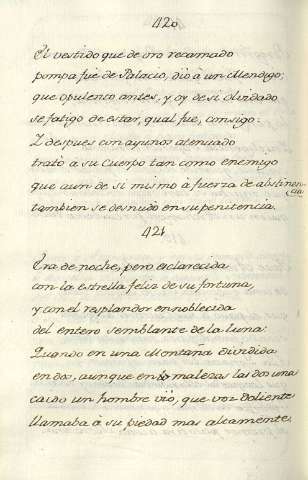 420
El vestido que de oro recamado
pompa fue de Palacio, dió à un Mendigo;
que opulento antes, y oy de si olvidado
se fatigo de estar, qual fue, consigo:
Y despues con ayunos atenuado
trató à su Cuerpo tan como enemigo
que aun de si mismo à fuerza de abstinencia
tambien se desnudó en su penitencia.
421
Era de noche, pero esclarecida
con la estrella felis de su fortuna,
y con el resplandor ennoblecida
del entero semblante de la luna:
Quando en una Montaña dividida
en dos, aunque en malezas las dos una
caido un hombre vió, que voz doliente
llamaba à su piedad mas altamente.